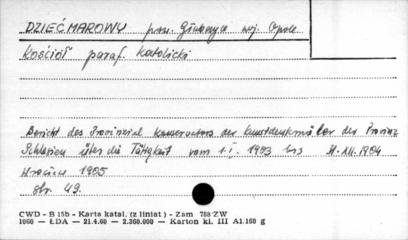 DZIEĆMAROWY pow. Głubczyce woj. Opole
Kościół paraf. katolicki
Bericht des Provinzial konservators der Kunstdenkmäler der Provinz
Schlesien über die Tätigkeit vom 1.I. 1903 bis 31.XII.1904
Wrocław 1905
str. 49.
CWD - B 15b - Karta katal. (z liniat) - Zam 768 ZW
1060 — ŁDA — 21.4.60 — 2.360.000 — Karton kl. III A1.160 g